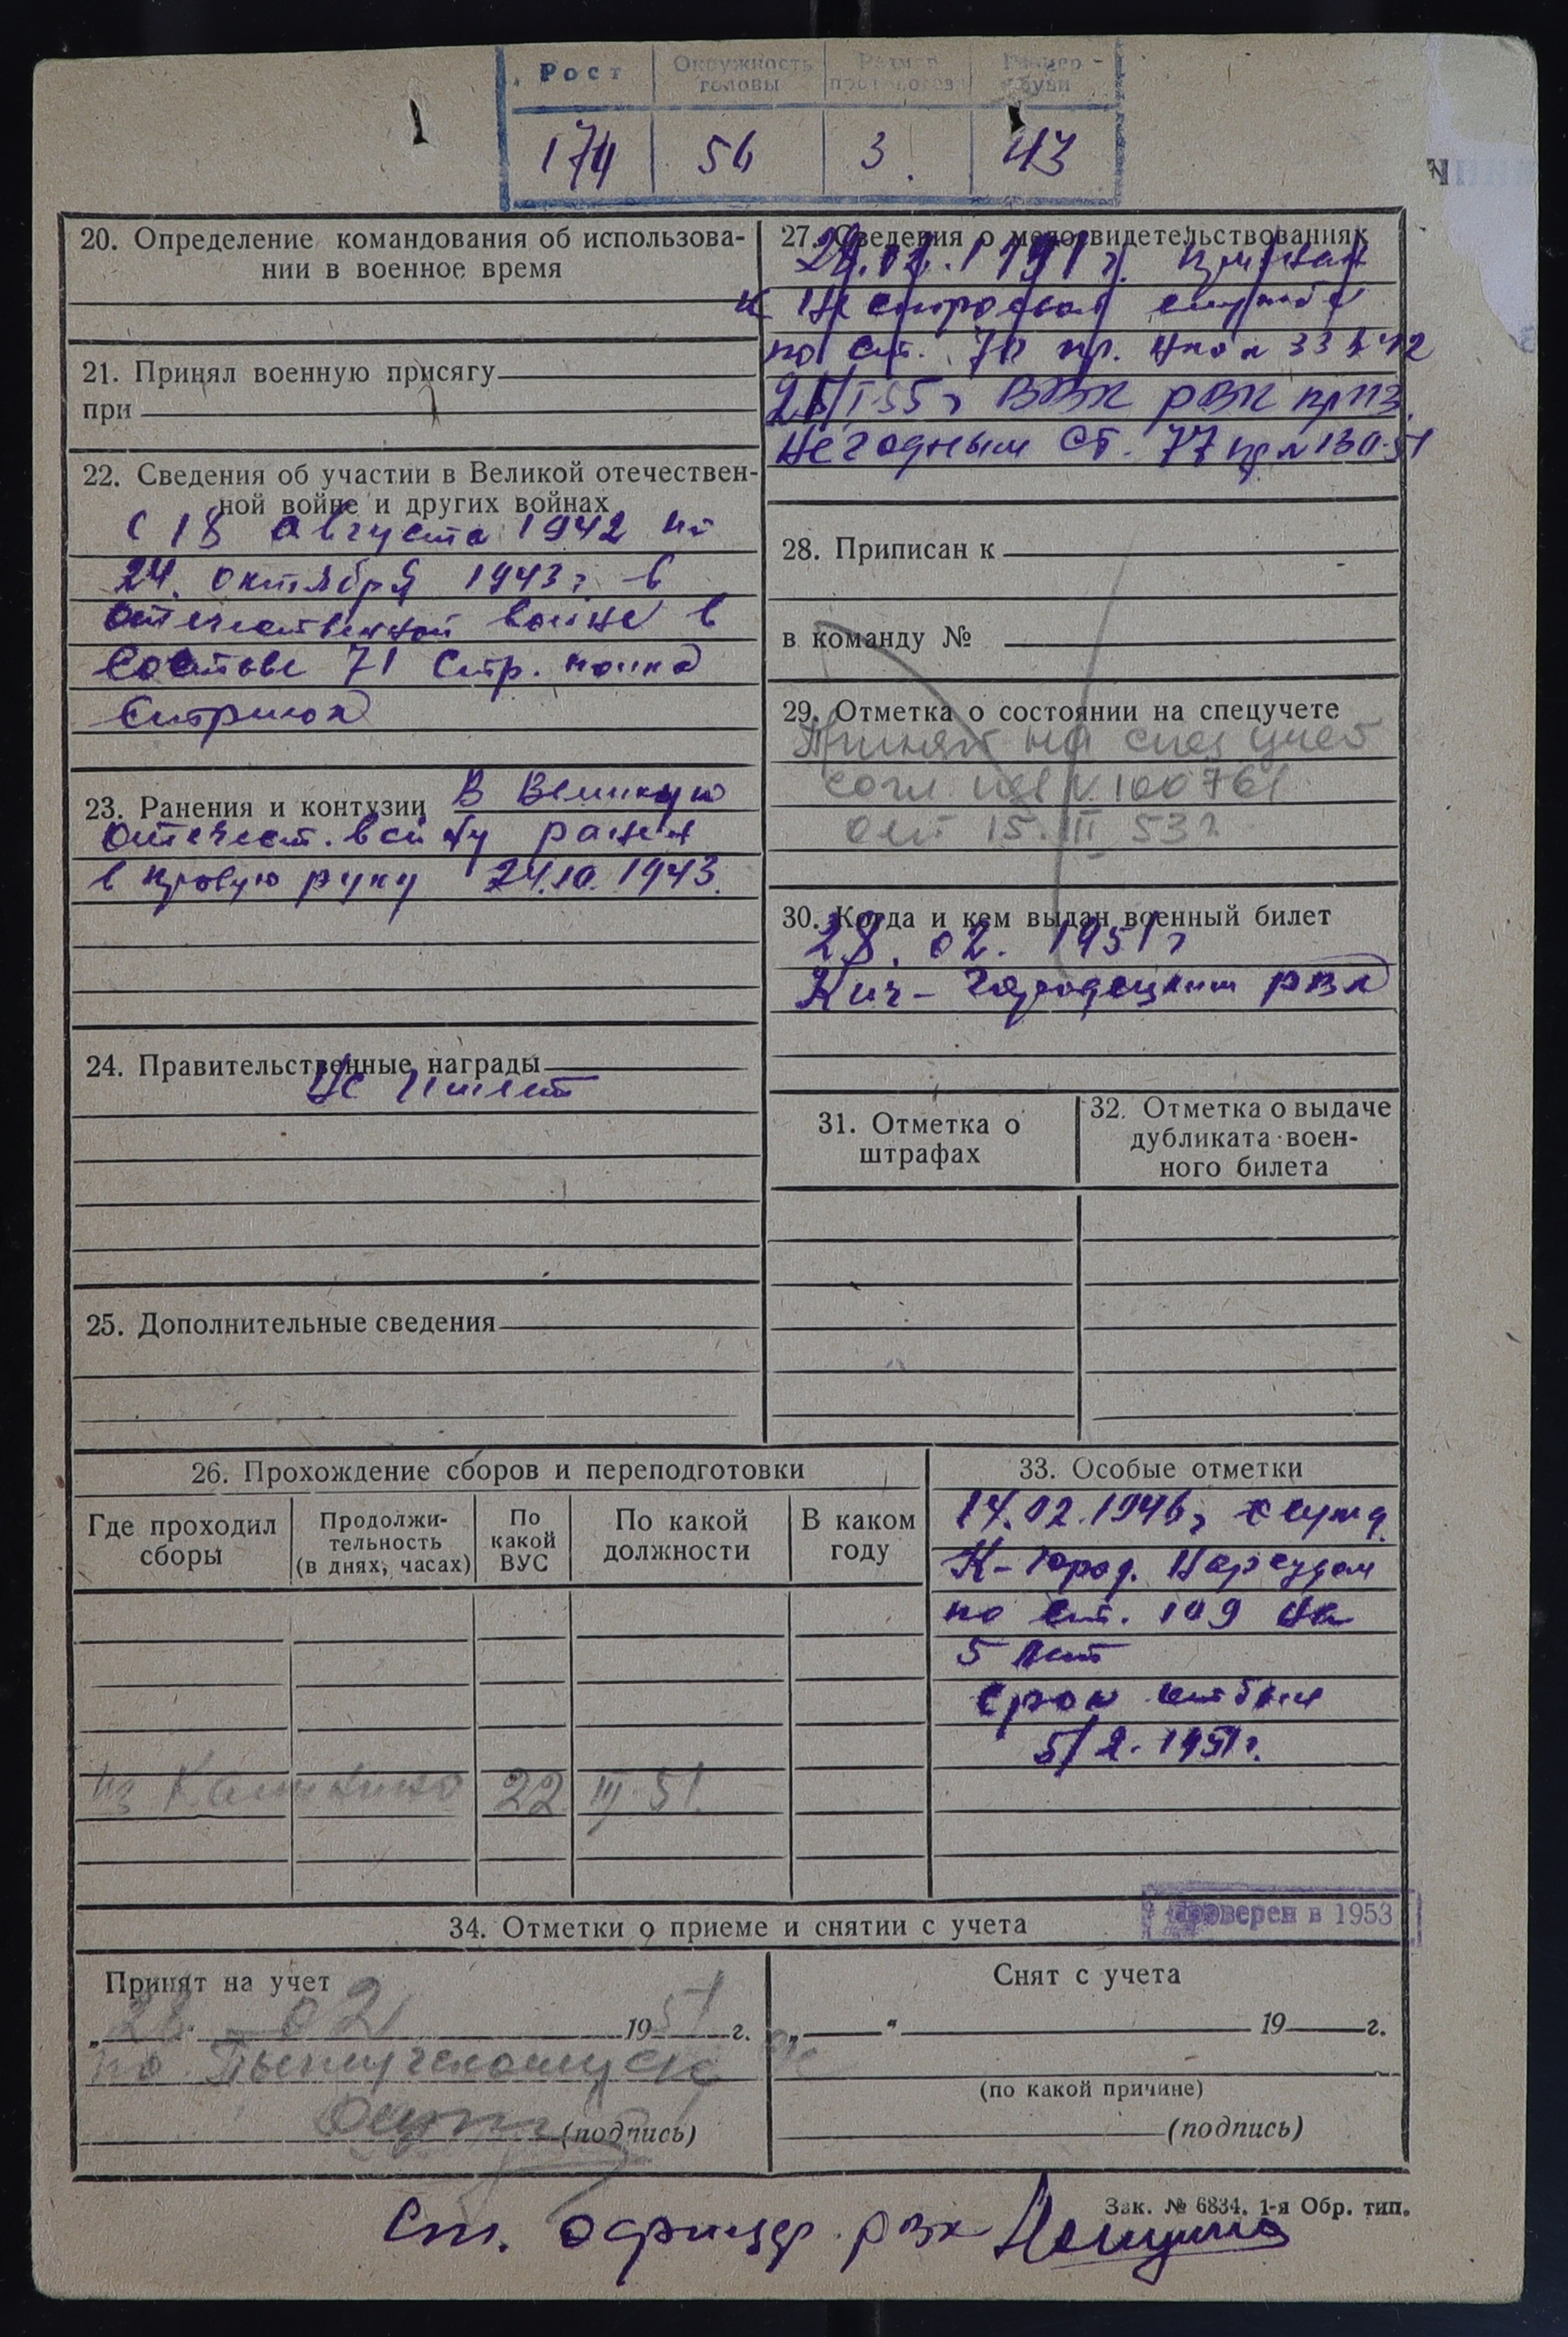 Рост Окружность головы Размер Размер обуви
174 56 3. 43
20. Определение командования об использова-
нии в военное время
21. Принял военную присягу
при
22. Сведения об участии в Великой отечествен-
ной войне и других войнах
С 18 Августа 1942 по
24. октября 1943 г. в
отечественной войне в
составе 71 Стр. полка
Стрелок
23. Ранения и контузии В Великую
отечест. войну ранен
в правую руку 24.10.1943.
24. Правительственные награды
Не имеет
25. Дополнительные сведения
27. Сведения о медосвидетельствованиях
признан
к Не строевой службе
по ст. пр. НКО № 336 42
I 55 г ВВК РВК приз.
Негодным Ст. 77 пр № 130-51
28. Приписан к
в команду №
29. Отметка о состоянии на спецучете
Принят на спец учет
согл. № 100761
от 15. III 53 г
30. Когда и кем выдан военный билет
28. 02. 1951 г
Кич-Городецким РВК
31. Отметка о
штрафах
32. Отметка о выдаче
дубликата воен-
ного билета
26. Прохождение сборов и переподготовки
Где проходил
сборы
Продолжи-
тельность
(в днях, часах)
По
какой
ВУС
По какой
должности
В каком
году
22 III 51.
33. Особые отметки
14.02.1946 г осужд.
К-Город. Нарсудом
по ст. 109 на
5 лет
срок отбыл
5/2. 1951 г.
Проверен в 1953
34. Отметки о приеме и снятии с учета
Принят на учет
28 02 1951 г.
по
(подпись)
Снят с учета
„ “ 19 г.
(по какой причине)
(подпись)
Зак. № 6834. 1-я Обр. тип.
Ст. офицер РВК